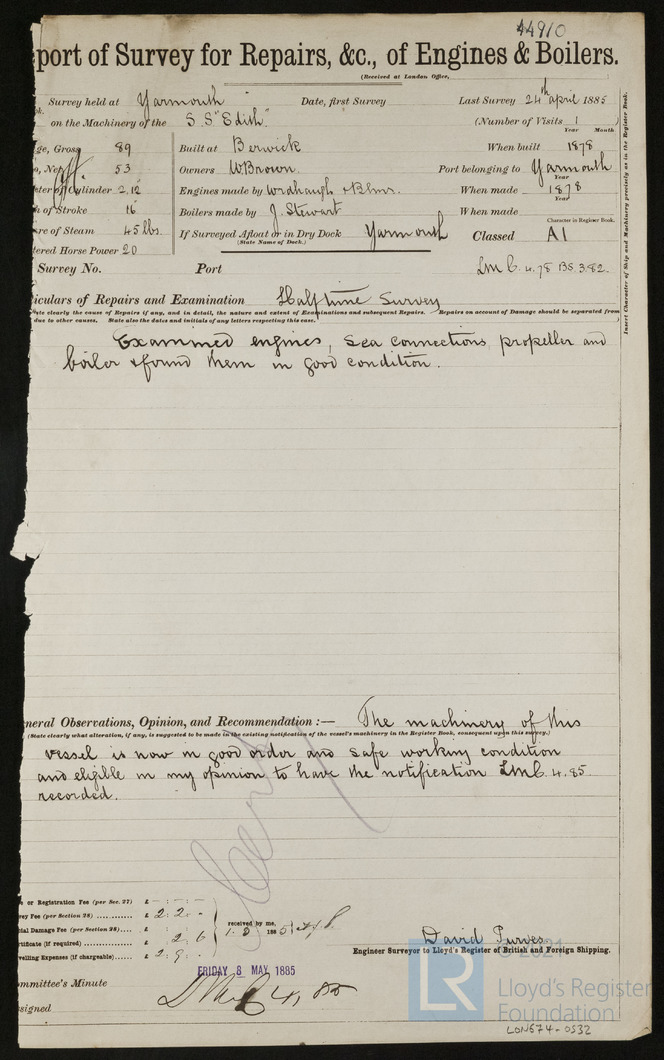 44910
port of Survey for Repairs, &c., of Engines & Boilers.
(Received at London Office,
Survey held at Yarmouth Date, first Survey Last Survey 24th april 1885
on the Machinery of the S.S "Edith" (Number of Visits 1
Year Month
ge, Gross 89 Built at Berwick When built 1878
53 Owners W Brown. Port belonging to Yarmouth
Year
eter of Cylinder 2, 12 Engines made by When made 1878
Year
h of Stroke 16 Boilers made by J. Stewart When made
Character in Register Book.
re of Steam 45 lbs. If Surveyed Afloat or in Dry Dock Yarmouth Classed A1
(State Name of Dock.)
tered Horse Power 20
Survey No. Port LMC. 4.78 BS. 3.82.
iculars of Repairs and Examination Half time Survey
ate clearly the cause of Repairs if any, and in detail, the nature and extent of Examinations and subsequent Repairs. Repairs on account of Damage should be separated from
due to other causes. State also the dates and initials of any letters respecting this case.
Insert Character of Ship and Machinery precisely as in the Register Book.
Examined engines, Sea connections, propeller and
boiler & found them in good condition.
neral Observations, Opinion, and Recommendation :— The machinery of this
(State clearly what alteration, if any, is suggested to be made in the existing notification of the vessel's machinery in the Register Book, consequent upon this survey.)
vessel is now in good order and safe working condition
and eligible in my opinion to have the notification LMC. 4. 85.
recorded.
e or Registration Fee (per Sec. 27) £ - : - : -
vey Fee (per Section 28) £ 2 : 2 : -
ial Damage Fee (per Section 28) £ : :
rtificate (if required) £ : 2 : 6
velling Expenses (if chargeable) £ 2 : 9 : -
received by me,
188
David Purves
Engineer Surveyor to Lloyd's Register of British and Foreign Shipping.
FRIDAY 8 MAY 1885
ommittee's Minute
signed
LMC 4, 85
© 2021
LR
Lloyd's Register
Foundation
LON674-0532